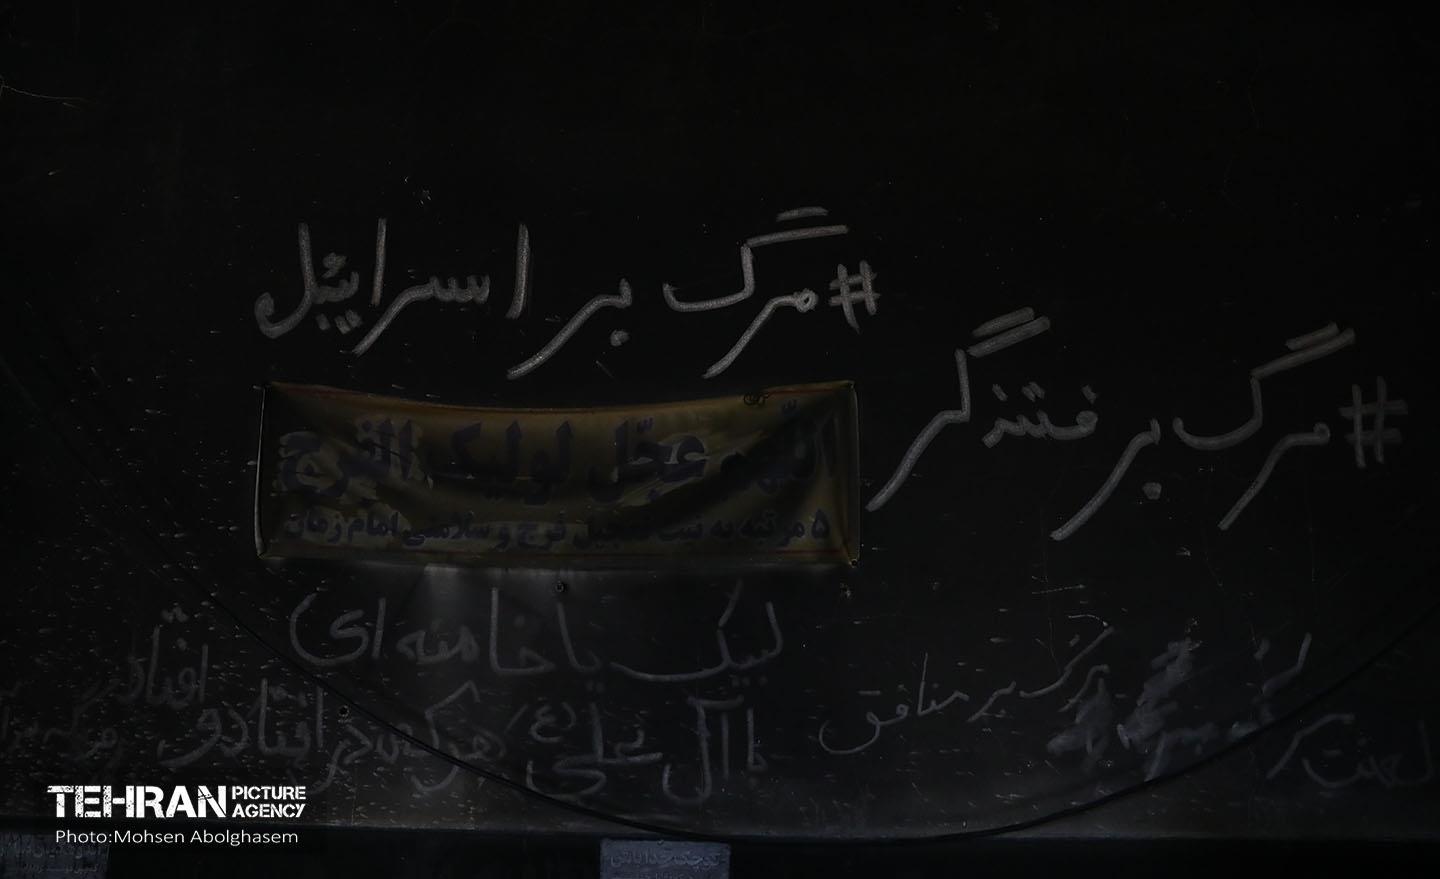 #مرگ بر اسراییل
#مرگ بر فتنه‌گر
اللهم عجل لولیک الفرج
۵ مرتبه به نیت تعجیل فرج و سلامتی امام زمان
لبیک یا خامنه ای
مرگ بر منافق
لعنت بر
با آل علی (ع) هر که در افتاد ور افتاد
TEHRAN PICTURE AGENCY
Photo:Mohsen Abolghasem